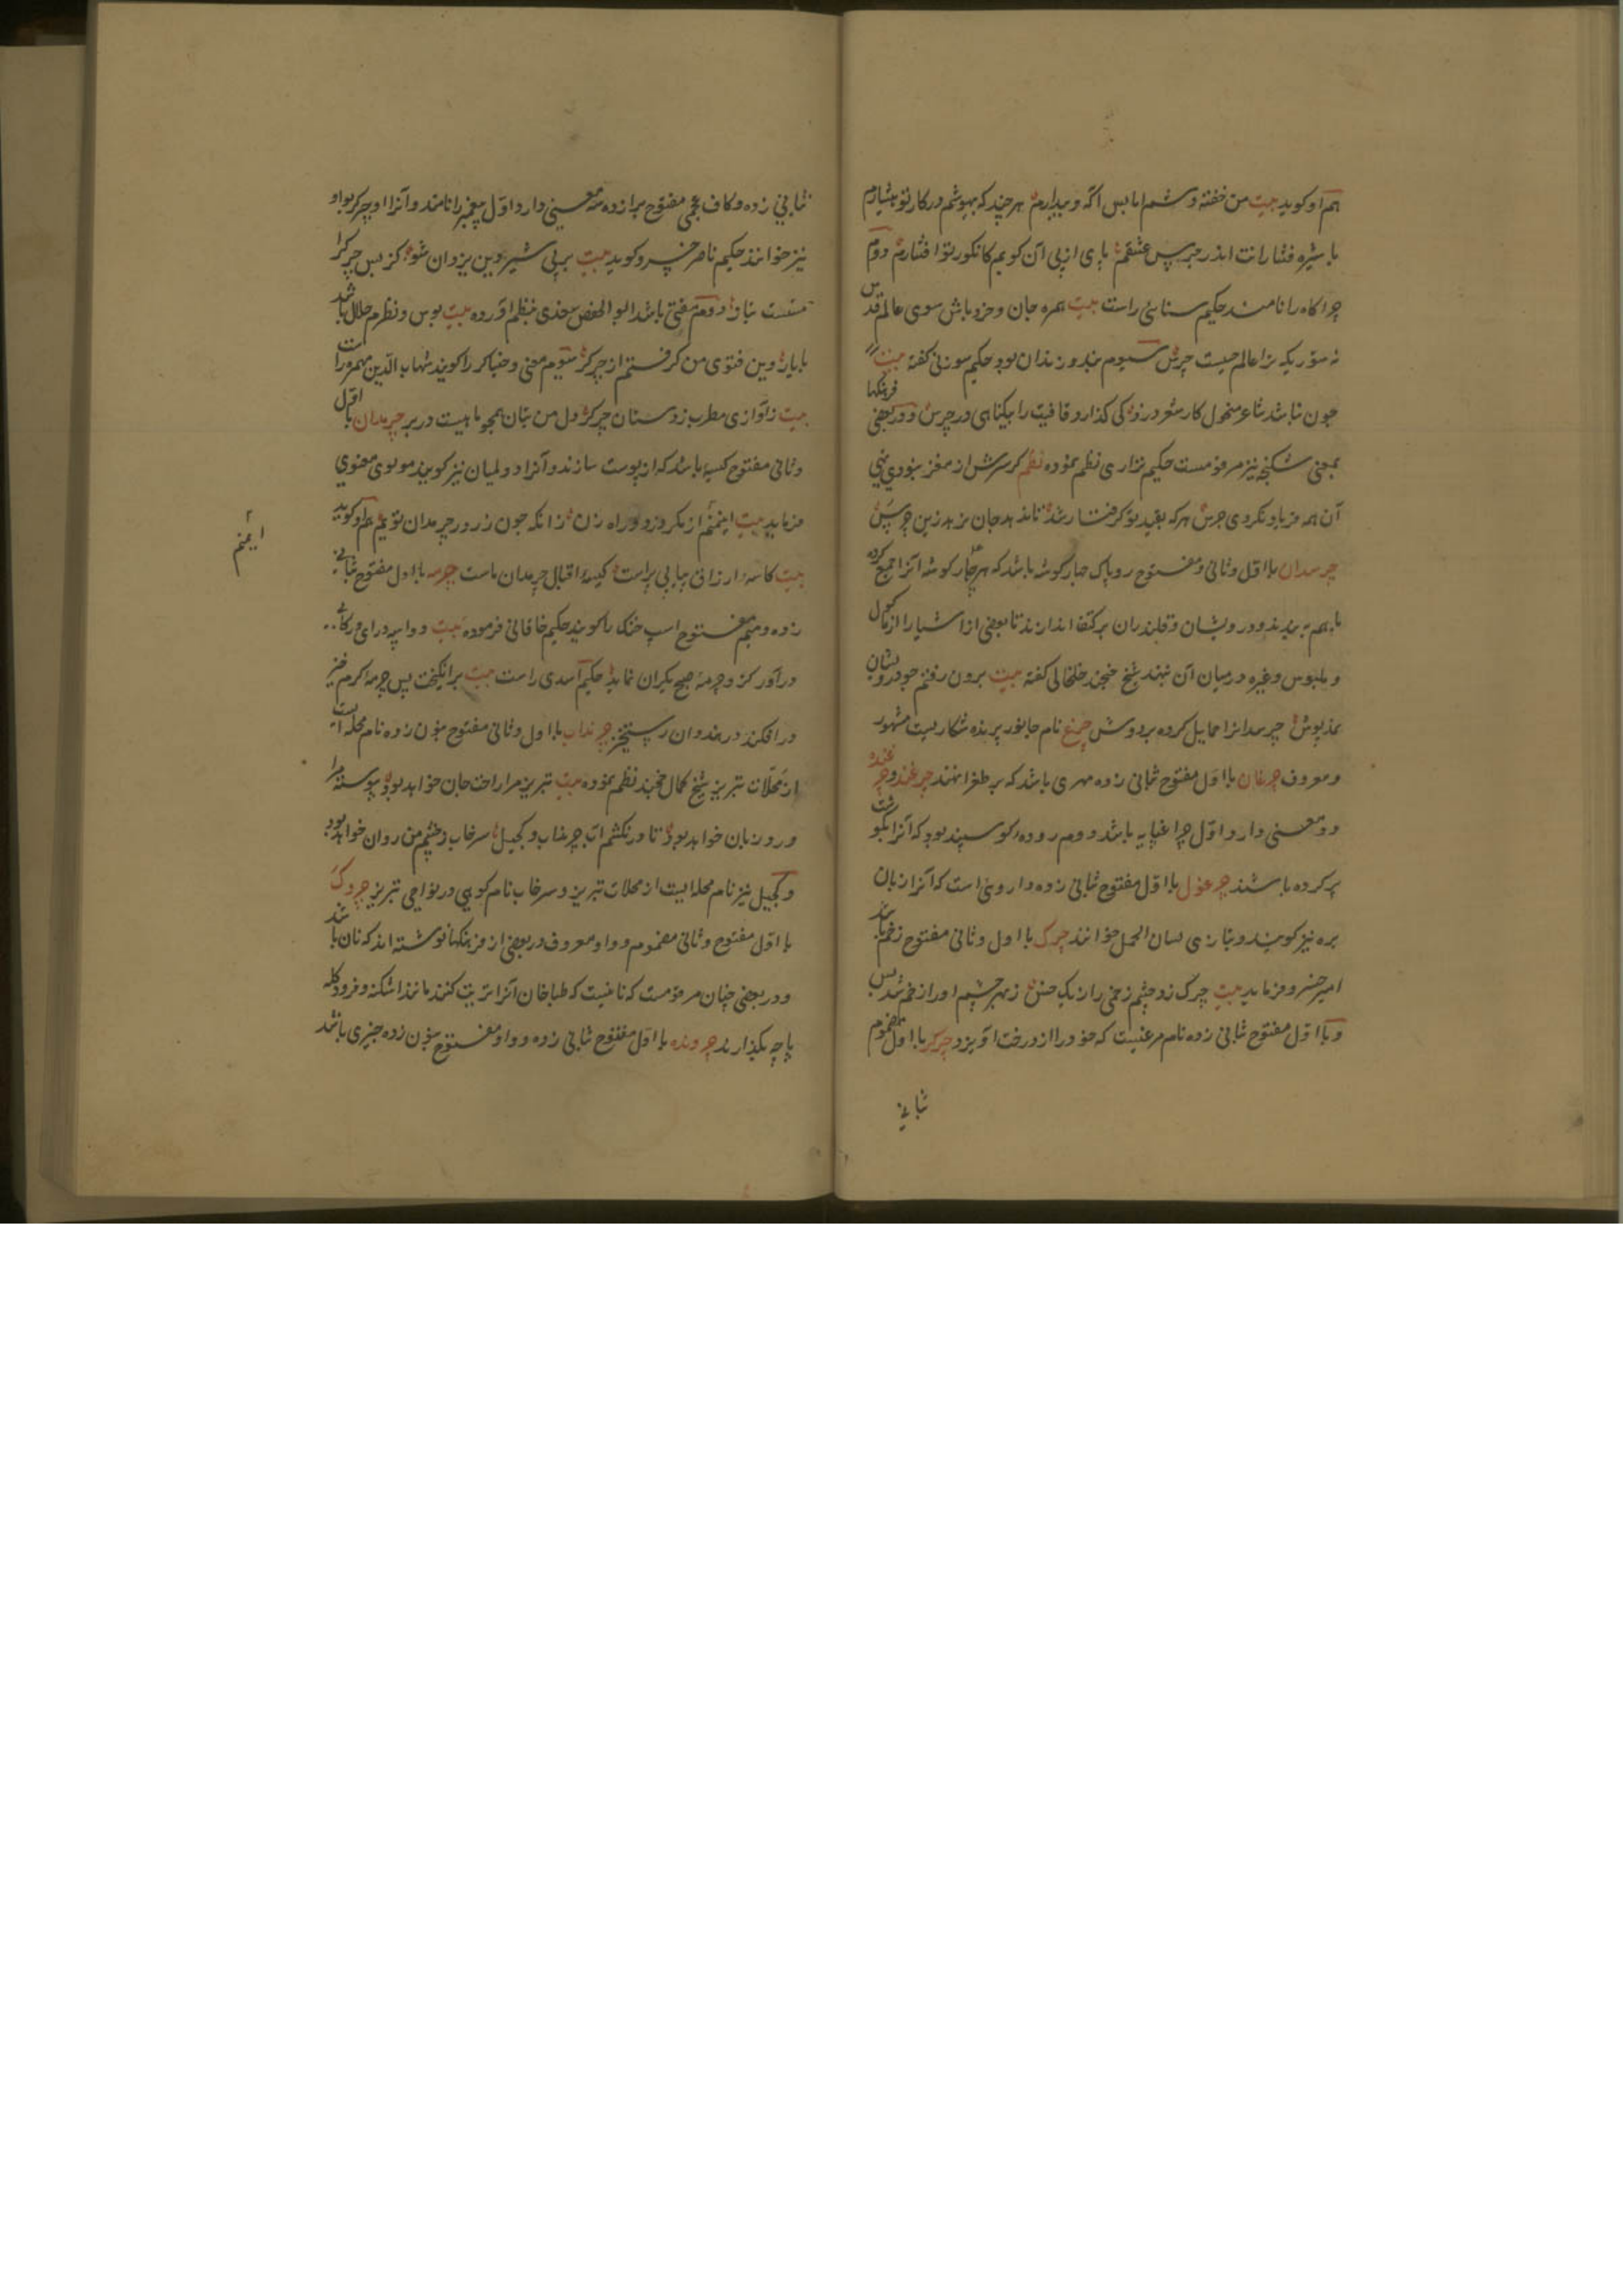 هم او کوید بیت من خفته وشم اما بس اکه و بیدارم هر چند که بیهوشم در کار تو هشیارم
با شیره فشارانت اندر چرس عشقم پای از پی آن کویم کانکور تو افشارم دوم
چراکاه را نامند حکیم سنائی راست بیت همره جان و خرد باش سوی عالم قدس
نه ستوریکه ترا عالم حسیت چرس سیوم بند و زندان بود حکیم سوزنی کفته بیت
چون نباشد شاعر منحول کار شعر درزد کی کذارد قافیت را بیکناهی در چرس و در بعضی فرهنکها
بمعنی شکنجه نیز مرقومست حکیم نزاری نظم نموده نظم کر سرش از مغز نبودی تهی
آن همه فریاد نکردی جرس هرکه بقید تو کرفتار شد تا ندهد جان نرهد زین چرس
چرسدان با اول و ثانی مفتوح روپاک چهار کوشه باشد که هر چهار کوشه آنرا جمع کرده
باهم بندند و درویشان و قلندران بر کتف اندازند تا بعضی از اشیا را از ماکول
و ملبوس و غیره در میان آن نهند شیخ خنجر خلخالی کفته بیت برون رفتم چو درویشان
نمدپوش چرسدانرا حمایل کرده بر دوش چرغ نام جانور پرنده شکاریست مشهور
و معروف چرغان با اول مفتوح ثانی زده مهری باشد که بر طغرا نهند چرغند و چرغنده
دو معنی دارد اول چراغپایه باشد دوم روده کوسپند بود که آنرا بکوشت
پر کرده باشند چرغول با اول مفتوح ثانی زده داروئی است که آنرا زبان
بره نیز کویند و بتازی لسان الحمل خوانند چرک با اول و ثانی مفتوح زخم باشد
امیر خسرو فرماید بیت چرک زد چشم زخمی را زیک حسن ز مهر چشم او را زخم شد بس
و با اول مفتوح ثانی زده نام مرغیست که خود را از درخت آویزد چرکر با اول مضموم
ثانی
ثانی زده و کاف عجمی مفتوح برا زده سه معنی دارد اول پیغمبر را نامند و آنرا وچرکر بواو
نیز خوانند حکیم ناصر خسرو کوید بیت بر پی شیر دین یزدان شو کز پس چرکرا
دوم مفتی باشد ابو الحفص سغدی بنظم آورده بیت بوس و نظرم حلال باشد
با یار وین فتوی من کرفتم از چرکر سیوم مغنی و خنیاکر را کویند شهاب الدین مهمره راست
بیت ز آوازی مطرب ز دستان چرکر دل من تبان همچو ماهیست در بر چرمدان با اول
و ثانی مفتوح کیسه باشد که از پوست سازند و آنرا دولمیان نیز کویند مولوی معنوی
فرماید بیت ایمنم از مکر دزد و راه زن زانکه چون زر در چرمدان توئیم هم او کوید
بیت کاسه ارزاق پیاپی پر است کیسه اقبال چرمدان ماست چرمه با اول مفتوح ثانی
زده و میم مفتوح اسپ خنک را کویند حکیم خاقانی فرموده بیت
ایمنم
درآور کز و چرمه صبح یکران نماید حکیم اسدی راست بیت برانکیخت پس چرمه کرم خیز
در افکند در هندوان رستخیز چرنداب با اول و ثانی مفتوح بنون زده نام محله ایست
از محلات تبریز شیخ کمال خجند نظم نموده بیت تبریز مرا راحت جان خواهد بود پیوسته مرا
ورد زبان خواهد بود تا در نکشم آب چرنداب و کجیل سرخاب ز چشم من روان خواهد بود
و کجیل نیز نام محله ایست از محلات تبریز و سرخاب نام کوهی در نواحی تبریز چروک
با اول مفتوح و ثانی مضموم و واو معروف در بعضی از فرهنکها نوشته اند که نان باشد
و در بعضی چنان مرقومست که نانیست که طباخان آنرا تربت کنند مانند اشکنه و فرود کله
پاچه بکذارند چرونده با اول مفتوح ثانی زده و واو مفتوح بنون زده چیزی باشد